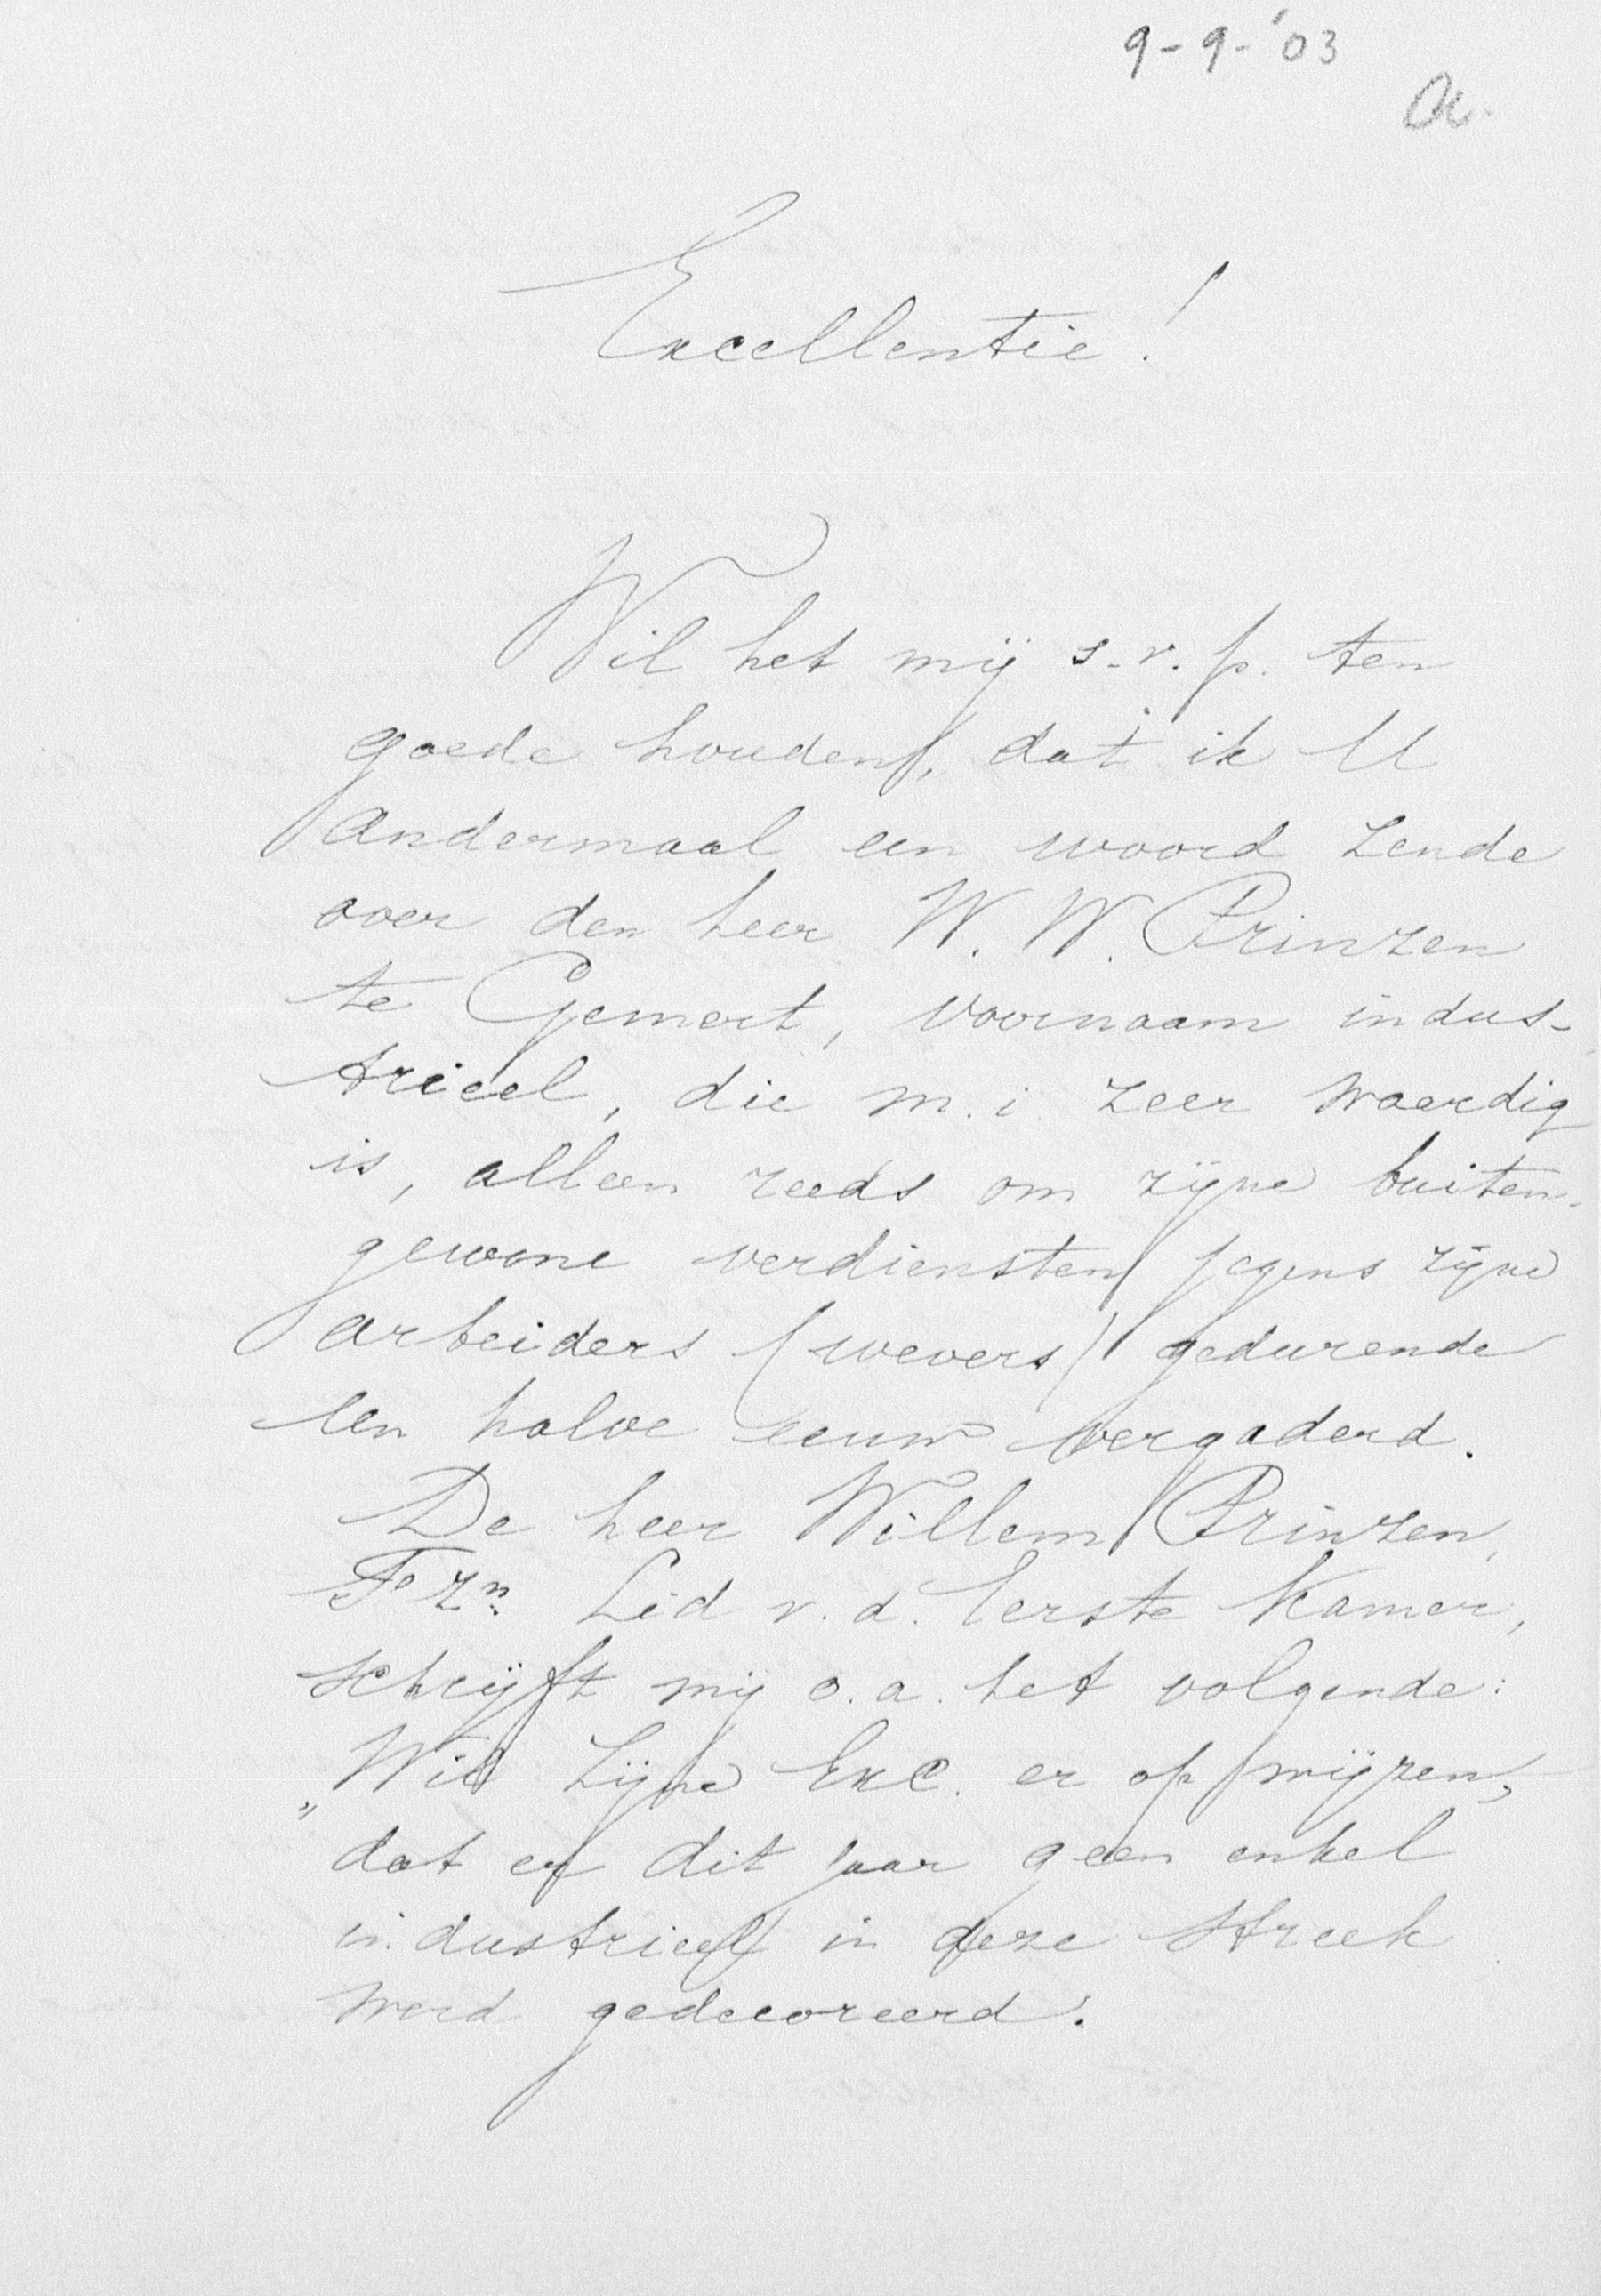 9-9-'03
Excellentie!
Wil het mij s.v.p. ten
goede houden, dat ik U
andermaal een woord zende
over den heer W. W. Prinzen
te Gemert, voornaam indus-
trieel, die m.i. zeer waardig
is, alleen reeds om zijne buiten-
gewone verdiensten jegens zijne
arbeiders (wevers) gedurende
een halve eeuw vergaderd.
De heer Willem Prinzen,
Fzn. Lid v.d. Eerste Kamer,
schrijft mij o.a. het volgende:
„Wil Zijne Exc. er op wijzen,
dat er dit jaar geen enkel
industrieel in deze streek
werd gedecoreerd.